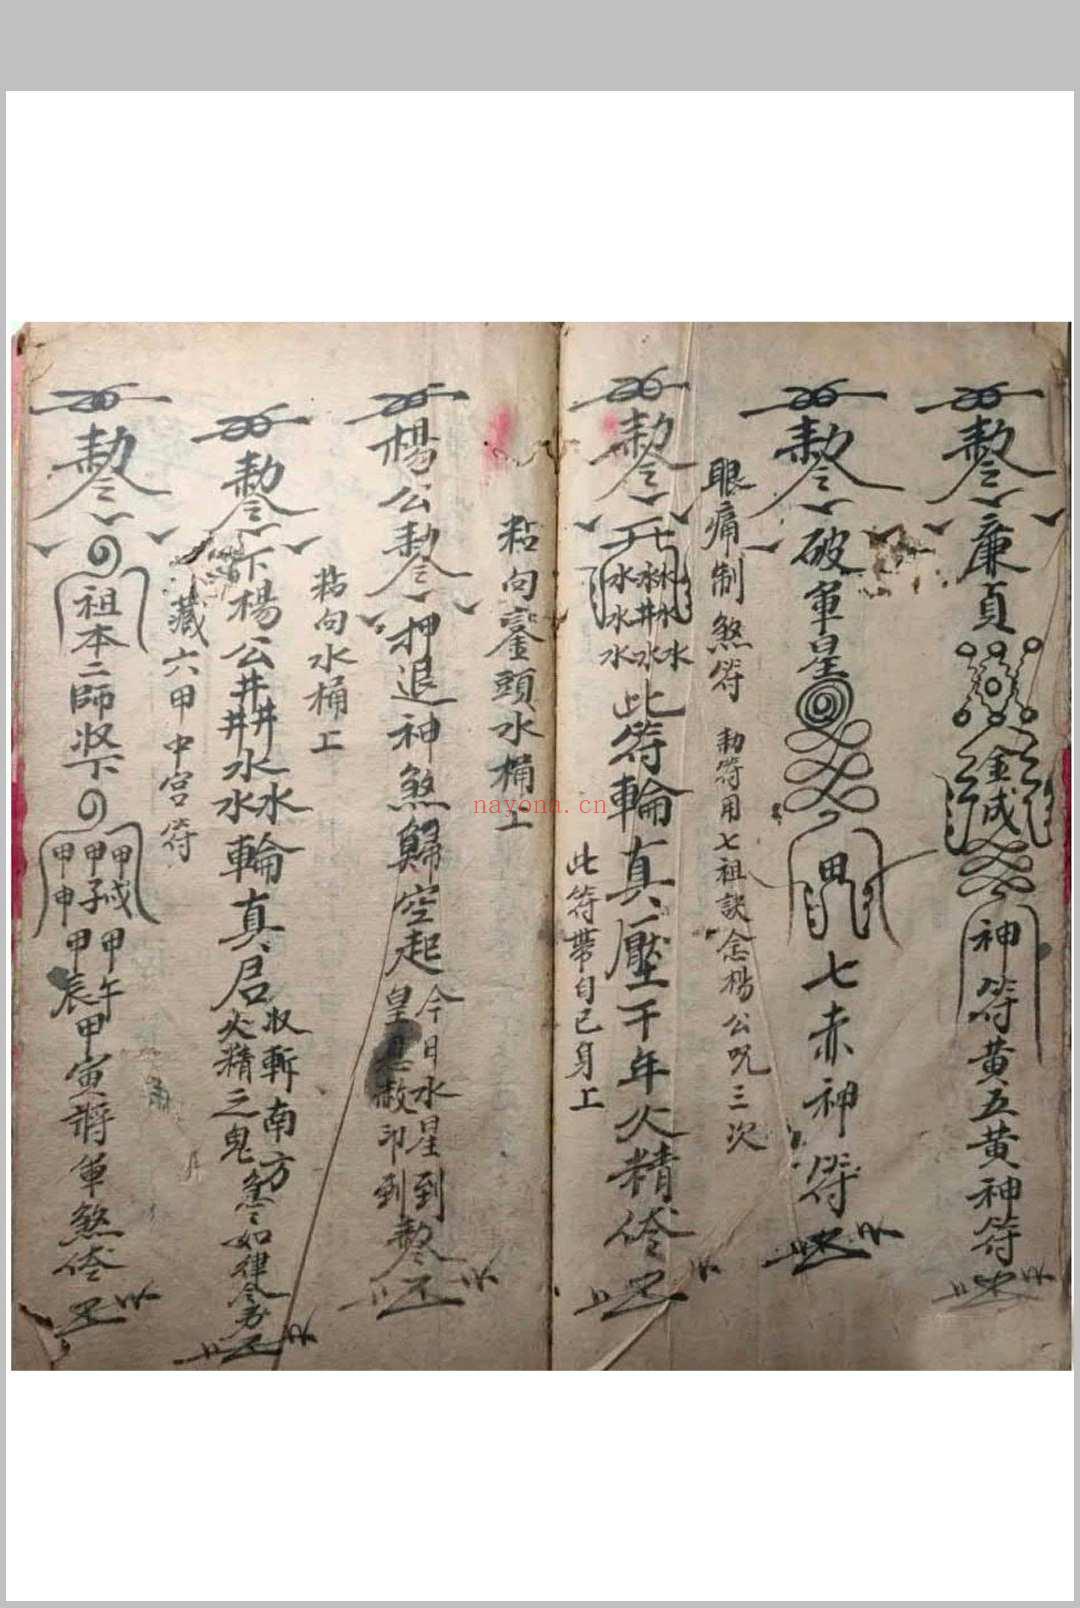 勅令廉貞
金成
神符黃五黃神符
勅令破軍星
甲
七赤神符
眼痛制煞符 勅符用七祖訣念楊公咒三次
勅令
水水水
水井水
水水水
此符輪真壓千年火精
此符帶自己身上
粘向鑾頭水桶上
楊公勅令押退神煞歸空起
今日水星到
皇恩赦印到
勅令
粘向水桶上
勅令下楊公井井井水水水輪真君
收斬南方
火精之鬼
急急如律令
藏六甲中宮符
勅令祖本二師
甲戌
甲子
甲申
甲午
甲辰
甲寅將軍煞
nayona.cn